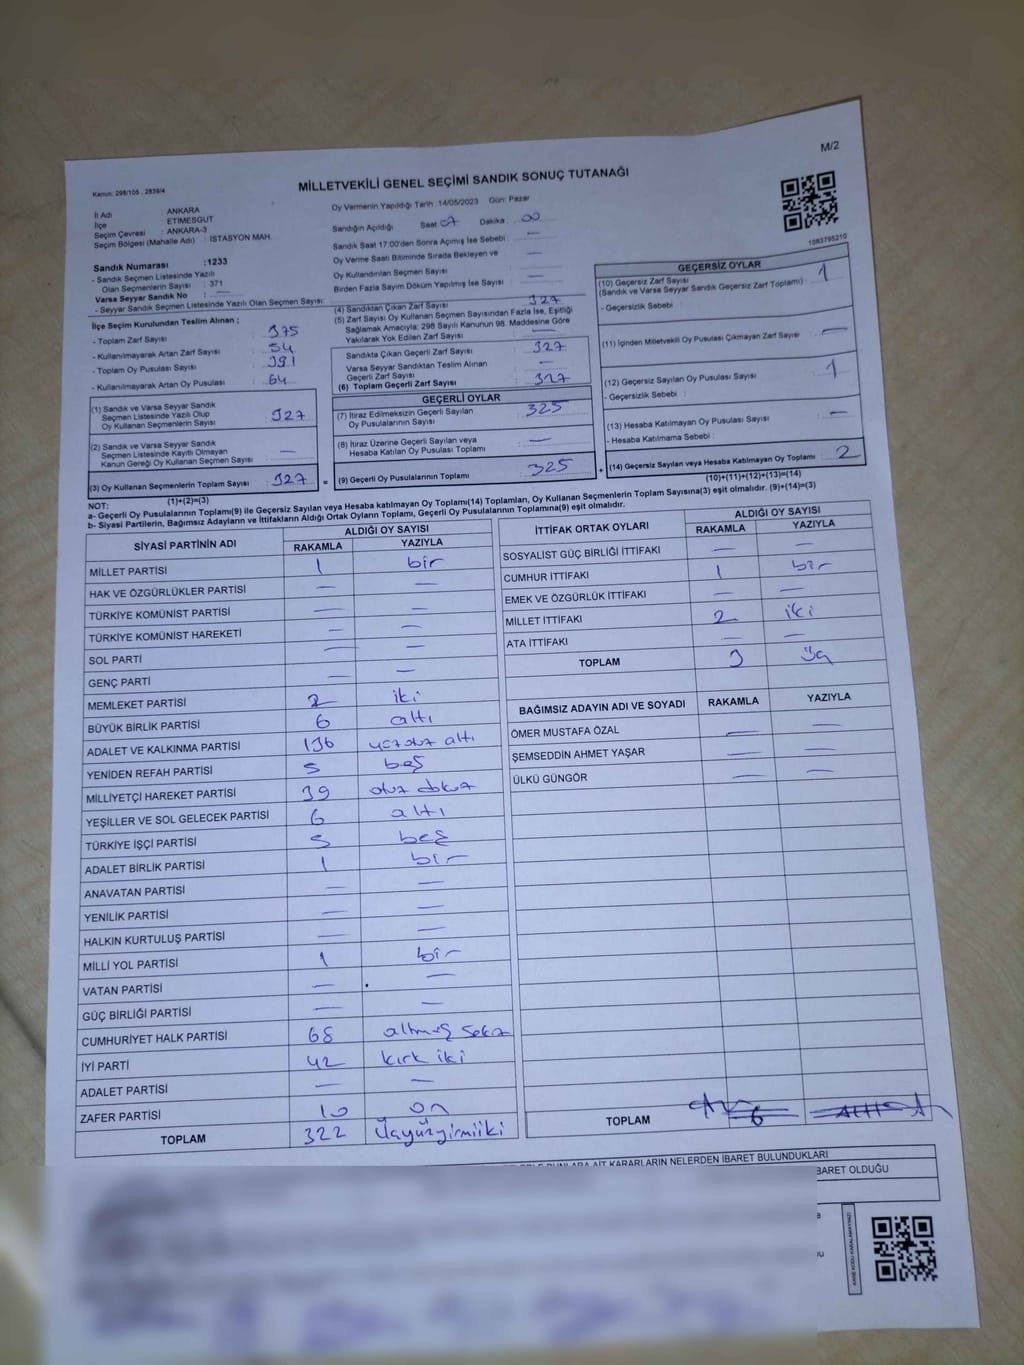 M/2
Kanun: 298/105 , 2839/4
MİLLETVEKİLİ GENEL SEÇİMİ SANDIK SONUÇ TUTANAĞI
İl Adı : ANKARA
İlçe : ETİMESGUT
Seçim Çevresi : ANKARA-3
Seçim Bölgesi (Mahalle Adı) : İSTASYON MAH.
Oy Vermenin Yapıldığı Tarih :14/05/2023 Gün: Pazar
Sandığın Açıldığı Saat 07 Dakika : 00
Sandık Saat 17:00'den Sonra Açımış İse Sebebi : —
Oy Verme Saati Bitiminde Sırada Bekleyen ve
Oy Kullandırılan Seçmen Sayısı —
Birden Fazla Sayım Döküm Yapılmış İse Sayısı —
1083795210
Sandık Numarası :1233
- Sandık Seçmen Listesinde Yazılı
Olan Seçmenlerin Sayısı : 371
Varsa Seyyar Sandık No : —
- Seyyar Sandık Seçmen Listesinde Yazılı Olan Seçmen Sayısı :
İlçe Seçim Kurulundan Teslim Alınan ;
- Toplam Zarf Sayısı : 375
- Kullanılmayarak Artan Zarf Sayısı : 54
- Toplam Oy Pusulası Sayısı : 391
- Kullanılmayarak Artan Oy Pusulası : 64
(1) Sandık ve Varsa Seyyar Sandık
Seçmen Listesinde Yazılı Olup
Oy Kullanan Seçmenlerin Sayısı : 327
(2) Sandık ve Varsa Seyyar Sandık
Seçmen Listesinde Kayıtlı Olmayan
Kanun Gereği Oy Kullanan Seçmen Sayısı : —
(3) Oy Kullanan Seçmenlerin Toplam Sayısı : 327
(1)+(2)=(3)
(4) Sandıktan Çıkan Zarf Sayısı : 327
(5) Zarf Sayısı Oy Kullanan Seçmen Sayısından Fazla İse, Eşitliği
Sağlamak Amacıyla; 298 Sayılı Kanunun 98. Maddesine Göre
Yakılarak Yok Edilen Zarf Sayısı : —
Sandıkta Çıkan Geçerli Zarf Sayısı : 327
Varsa Seyyar Sandıktan Teslim Alınan
Geçerli Zarf Sayısı : —
(6) Toplam Geçerli Zarf Sayısı : 327
GEÇERLİ OYLAR
(7) İtiraz Edilmeksizin Geçerli Sayılan
Oy Pusulalarının Sayısı : 325
(8) İtiraz Üzerine Geçerli Sayılan veya
Hesaba Katılan Oy Pusulası Toplamı : —
= (9) Geçerli Oy Pusulalarının Toplamı : 325
GEÇERSİZ OYLAR
(10) Geçersiz Zarf Sayısı
(Sandık ve Varsa Seyyar Sandık Geçersiz Zarf Toplamı) : 1
- Geçersizlik Sebebi :
(11) İçinden Milletvekili Oy Pusulası Çıkmayan Zarf Sayısı : —
(12) Geçersiz Sayılan Oy Pusulası Sayısı : 1
- Geçersizlik Sebebi :
(13) Hesaba Katılmayan Oy Pusulası Sayısı : —
- Hesaba Katılmama Sebebi :
+ (14) Geçersiz Sayılan veya Hesaba Katılmayan Oy Toplamı : 2
(10)+(11)+(12)+(13)=(14)
NOT:
a- Geçerli Oy Pusulalarının Toplamı(9) ile Geçersiz Sayılan veya Hesaba katılmayan Oy Toplamı(14) Toplamları, Oy Kullanan Seçmenlerin Toplam Sayısına(3) eşit olmalıdır. (9)+(14)=(3)
b- Siyasi Partilerin, Bağımsız Adayların ve İttifakların Aldığı Ortak Oyların Toplamı, Geçerli Oy Pusulalarının Toplamına(9) eşit olmalıdır.
SİYASİ PARTİNİN ADI ALDIĞI OY SAYISI
RAKAMLA YAZIYLA
MİLLET PARTİSİ 1 bir
HAK VE ÖZGÜRLÜKLER PARTİSİ — —
TÜRKİYE KOMÜNİST PARTİSİ — —
TÜRKİYE KOMÜNİST HAREKETİ — —
SOL PARTİ — —
GENÇ PARTİ — —
MEMLEKET PARTİSİ 2 iki
BÜYÜK BİRLİK PARTİSİ 6 altı
ADALET VE KALKINMA PARTİSİ 136 yüzotuz altı
YENİDEN REFAH PARTİSİ 5 beş
MİLLİYETÇİ HAREKET PARTİSİ 39 otuz dokuz
YEŞİLLER VE SOL GELECEK PARTİSİ 6 altı
TÜRKİYE İŞÇİ PARTİSİ 5 beş
ADALET BİRLİK PARTİSİ 1 bir
ANAVATAN PARTİSİ — —
YENİLİK PARTİSİ — —
HALKIN KURTULUŞ PARTİSİ — —
MİLLİ YOL PARTİSİ 1 bir
VATAN PARTİSİ — —
GÜÇ BİRLİĞİ PARTİSİ — —
CUMHURİYET HALK PARTİSİ 68 altmış sekiz
İYİ PARTİ 42 kırk iki
ADALET PARTİSİ — —
ZAFER PARTİSİ 10 on
TOPLAM 322 Üçyüzyirmiiki
İTTİFAK ORTAK OYLARI ALDIĞI OY SAYISI
RAKAMLA YAZIYLA
SOSYALİST GÜÇ BİRLİĞİ İTTİFAKI — —
CUMHUR İTTİFAKI 1 bir
EMEK VE ÖZGÜRLÜK İTTİFAKI — —
MİLLET İTTİFAKI 2 iki
ATA İTTİFAKI — —
TOPLAM 3 Üç
BAĞIMSIZ ADAYIN ADI VE SOYADI RAKAMLA YAZIYLA
ÖMER MUSTAFA ÖZAL — —
ŞEMSEDDİN AHMET YAŞAR — —
ÜLKÜ GÜNGÖR — —
TOPLAM 6
BUNLARA AİT KARARLARIN NELERDEN İBARET BULUNDUKLARI
İBARET OLDUĞU